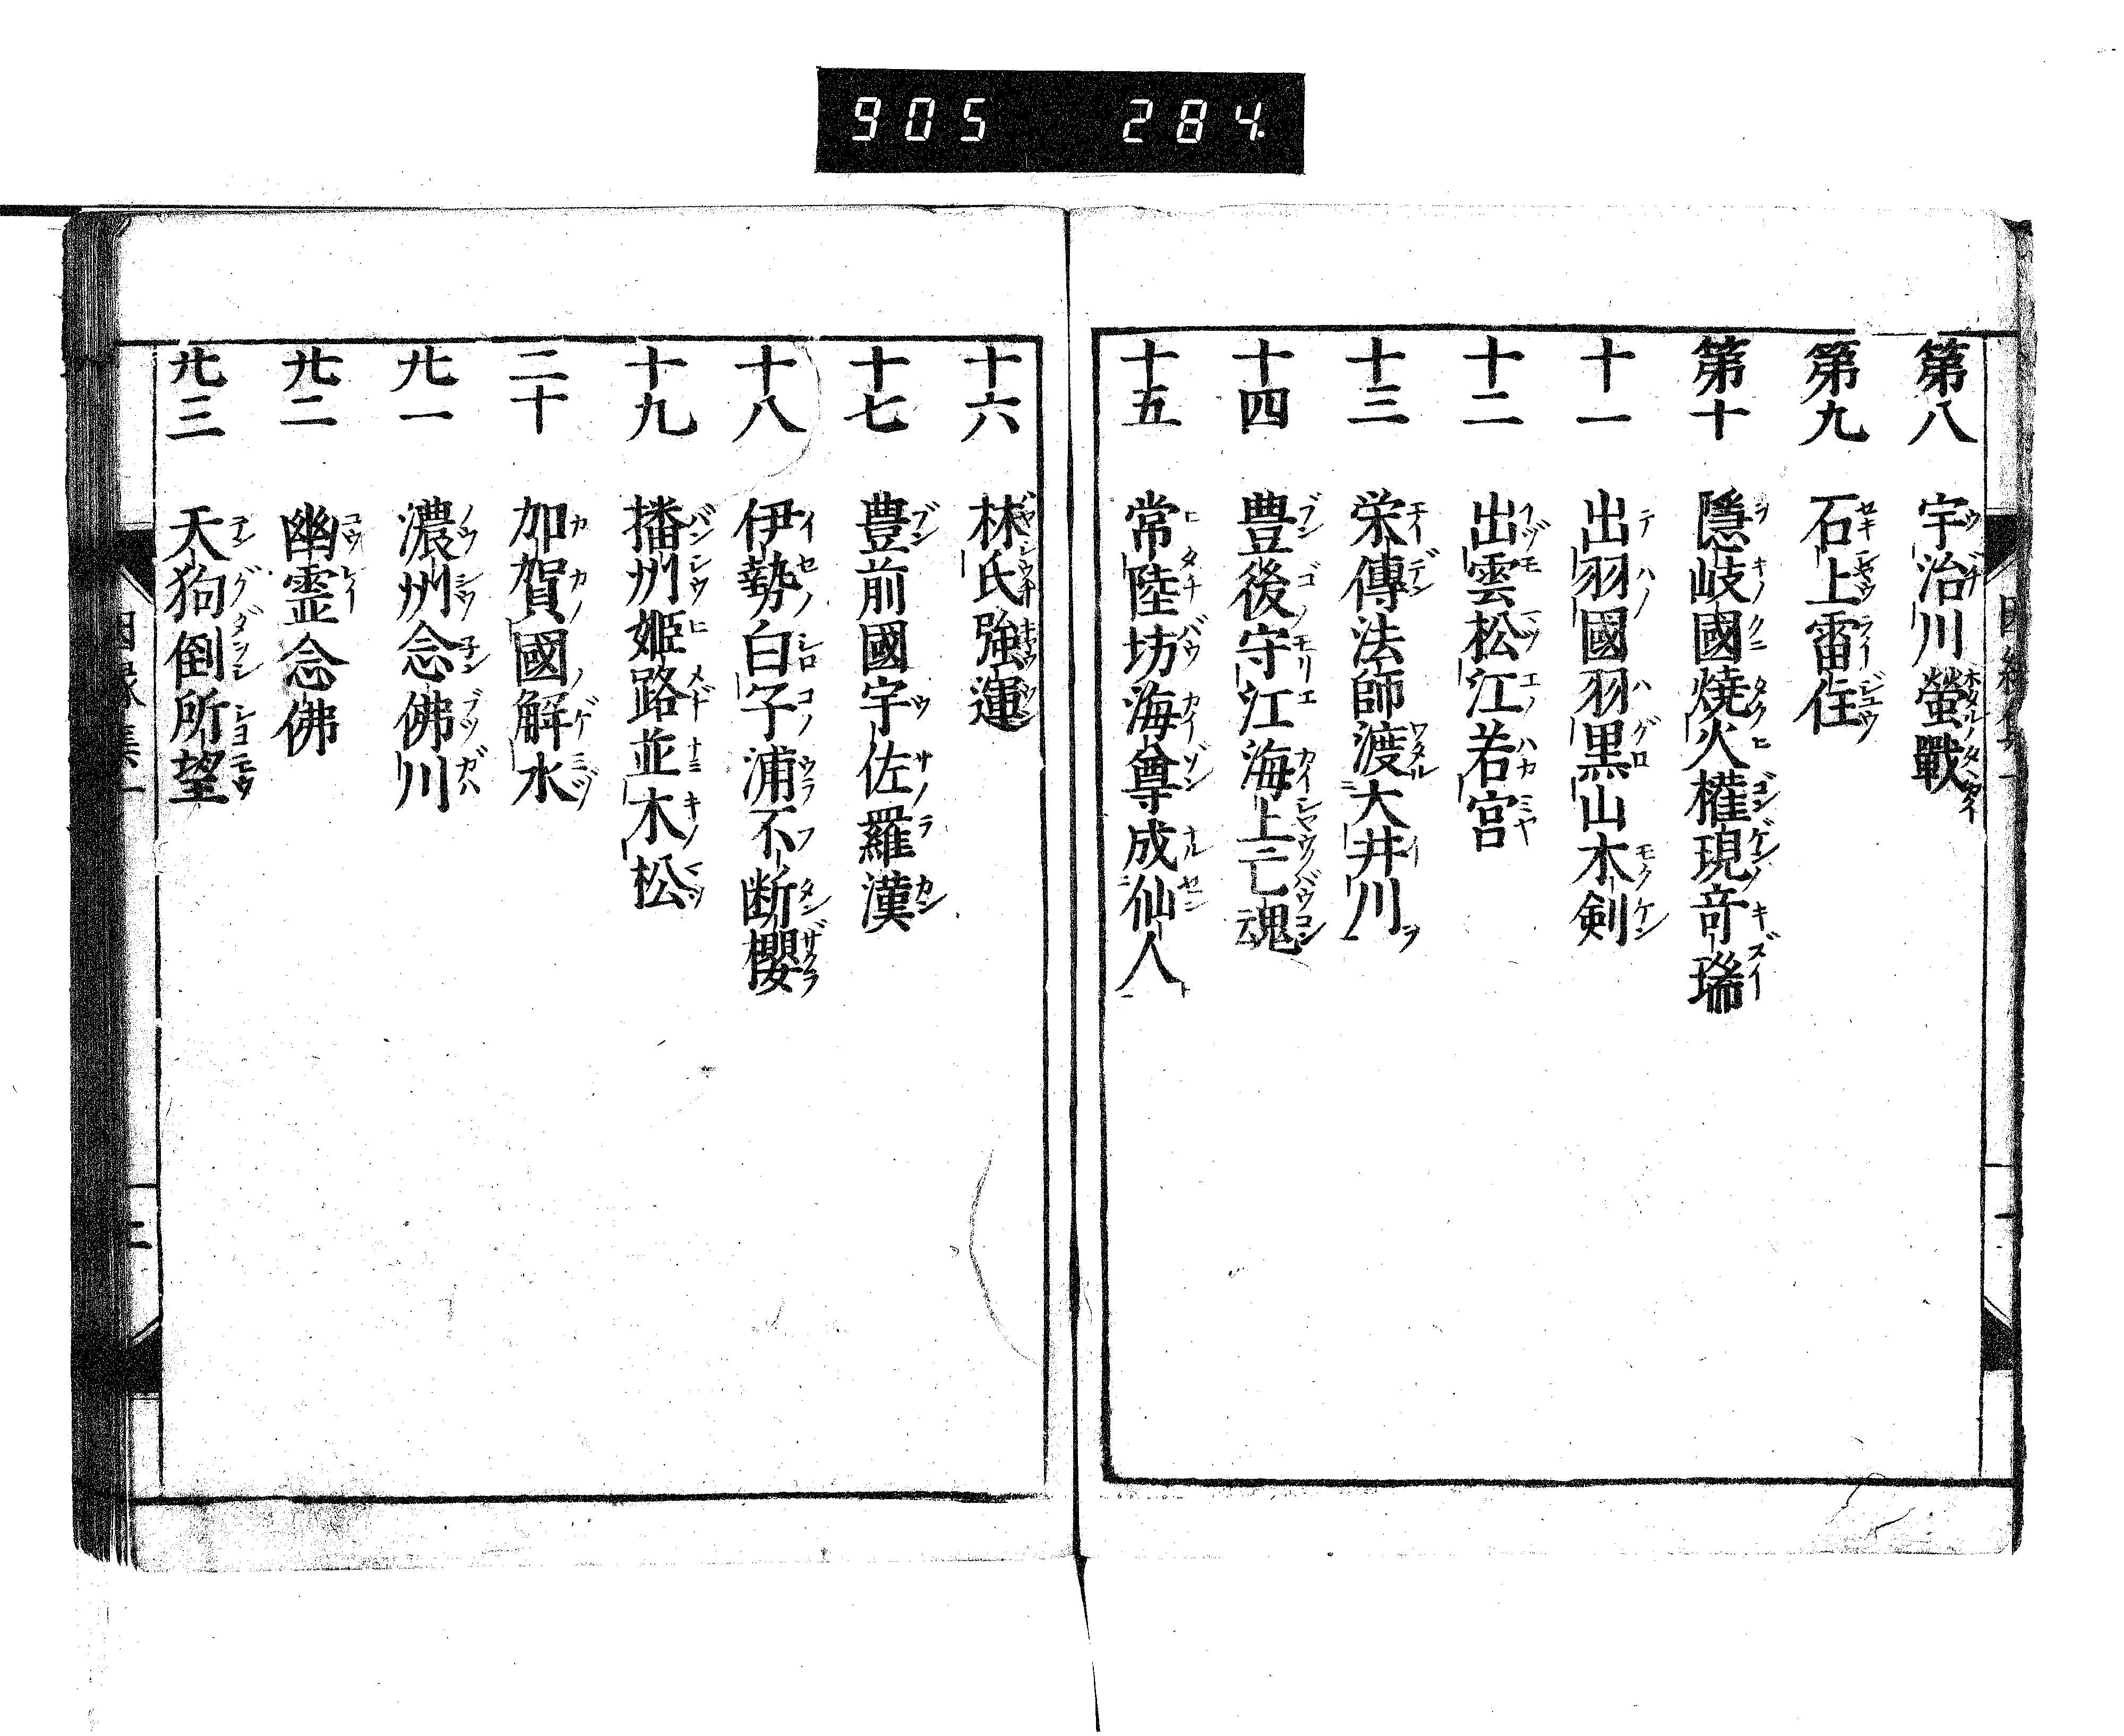 905 284
第八 宇治川螢戰
第九 石上雷住
第十 隱岐國燒火權現竒瑞
十一 出羽國羽黒山木剣
十二 出雲松江若宮
十三 栄傳法師渡大井川
十四 豊後守江海上亡魂
十五 常陸坊海尊成仙人
十六 林氏強運
十七 豊前國宇佐羅漢
十八 伊勢白子浦不断櫻
十九 播州姫路並木松
二十 加賀國解水
廿一 濃州念佛川
廿二 幽霊念佛
廿三 天狗倒所望